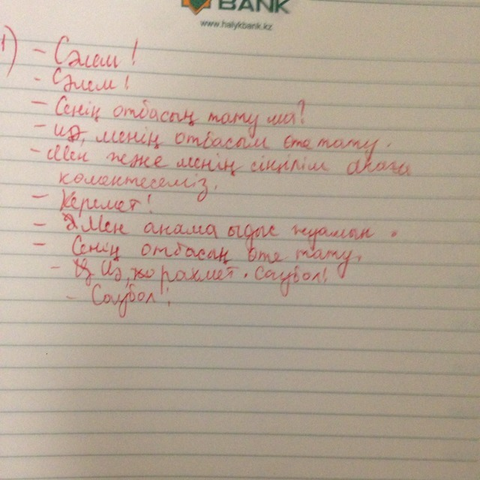 BANK
www.halykbank.kz
1) - Сәлем!
- Сәлем!
- Сенің отбасың тату ма?
- Иә, менің отбасым өте тату.
- Мен және менің сіңілім анаға
көмектесеміз.
- Керемет!
- Мен анама ыдыс жуамын.
- Сенің отбасың өте тату.
- Иә, рахмет. Саубол!
- Саубол!